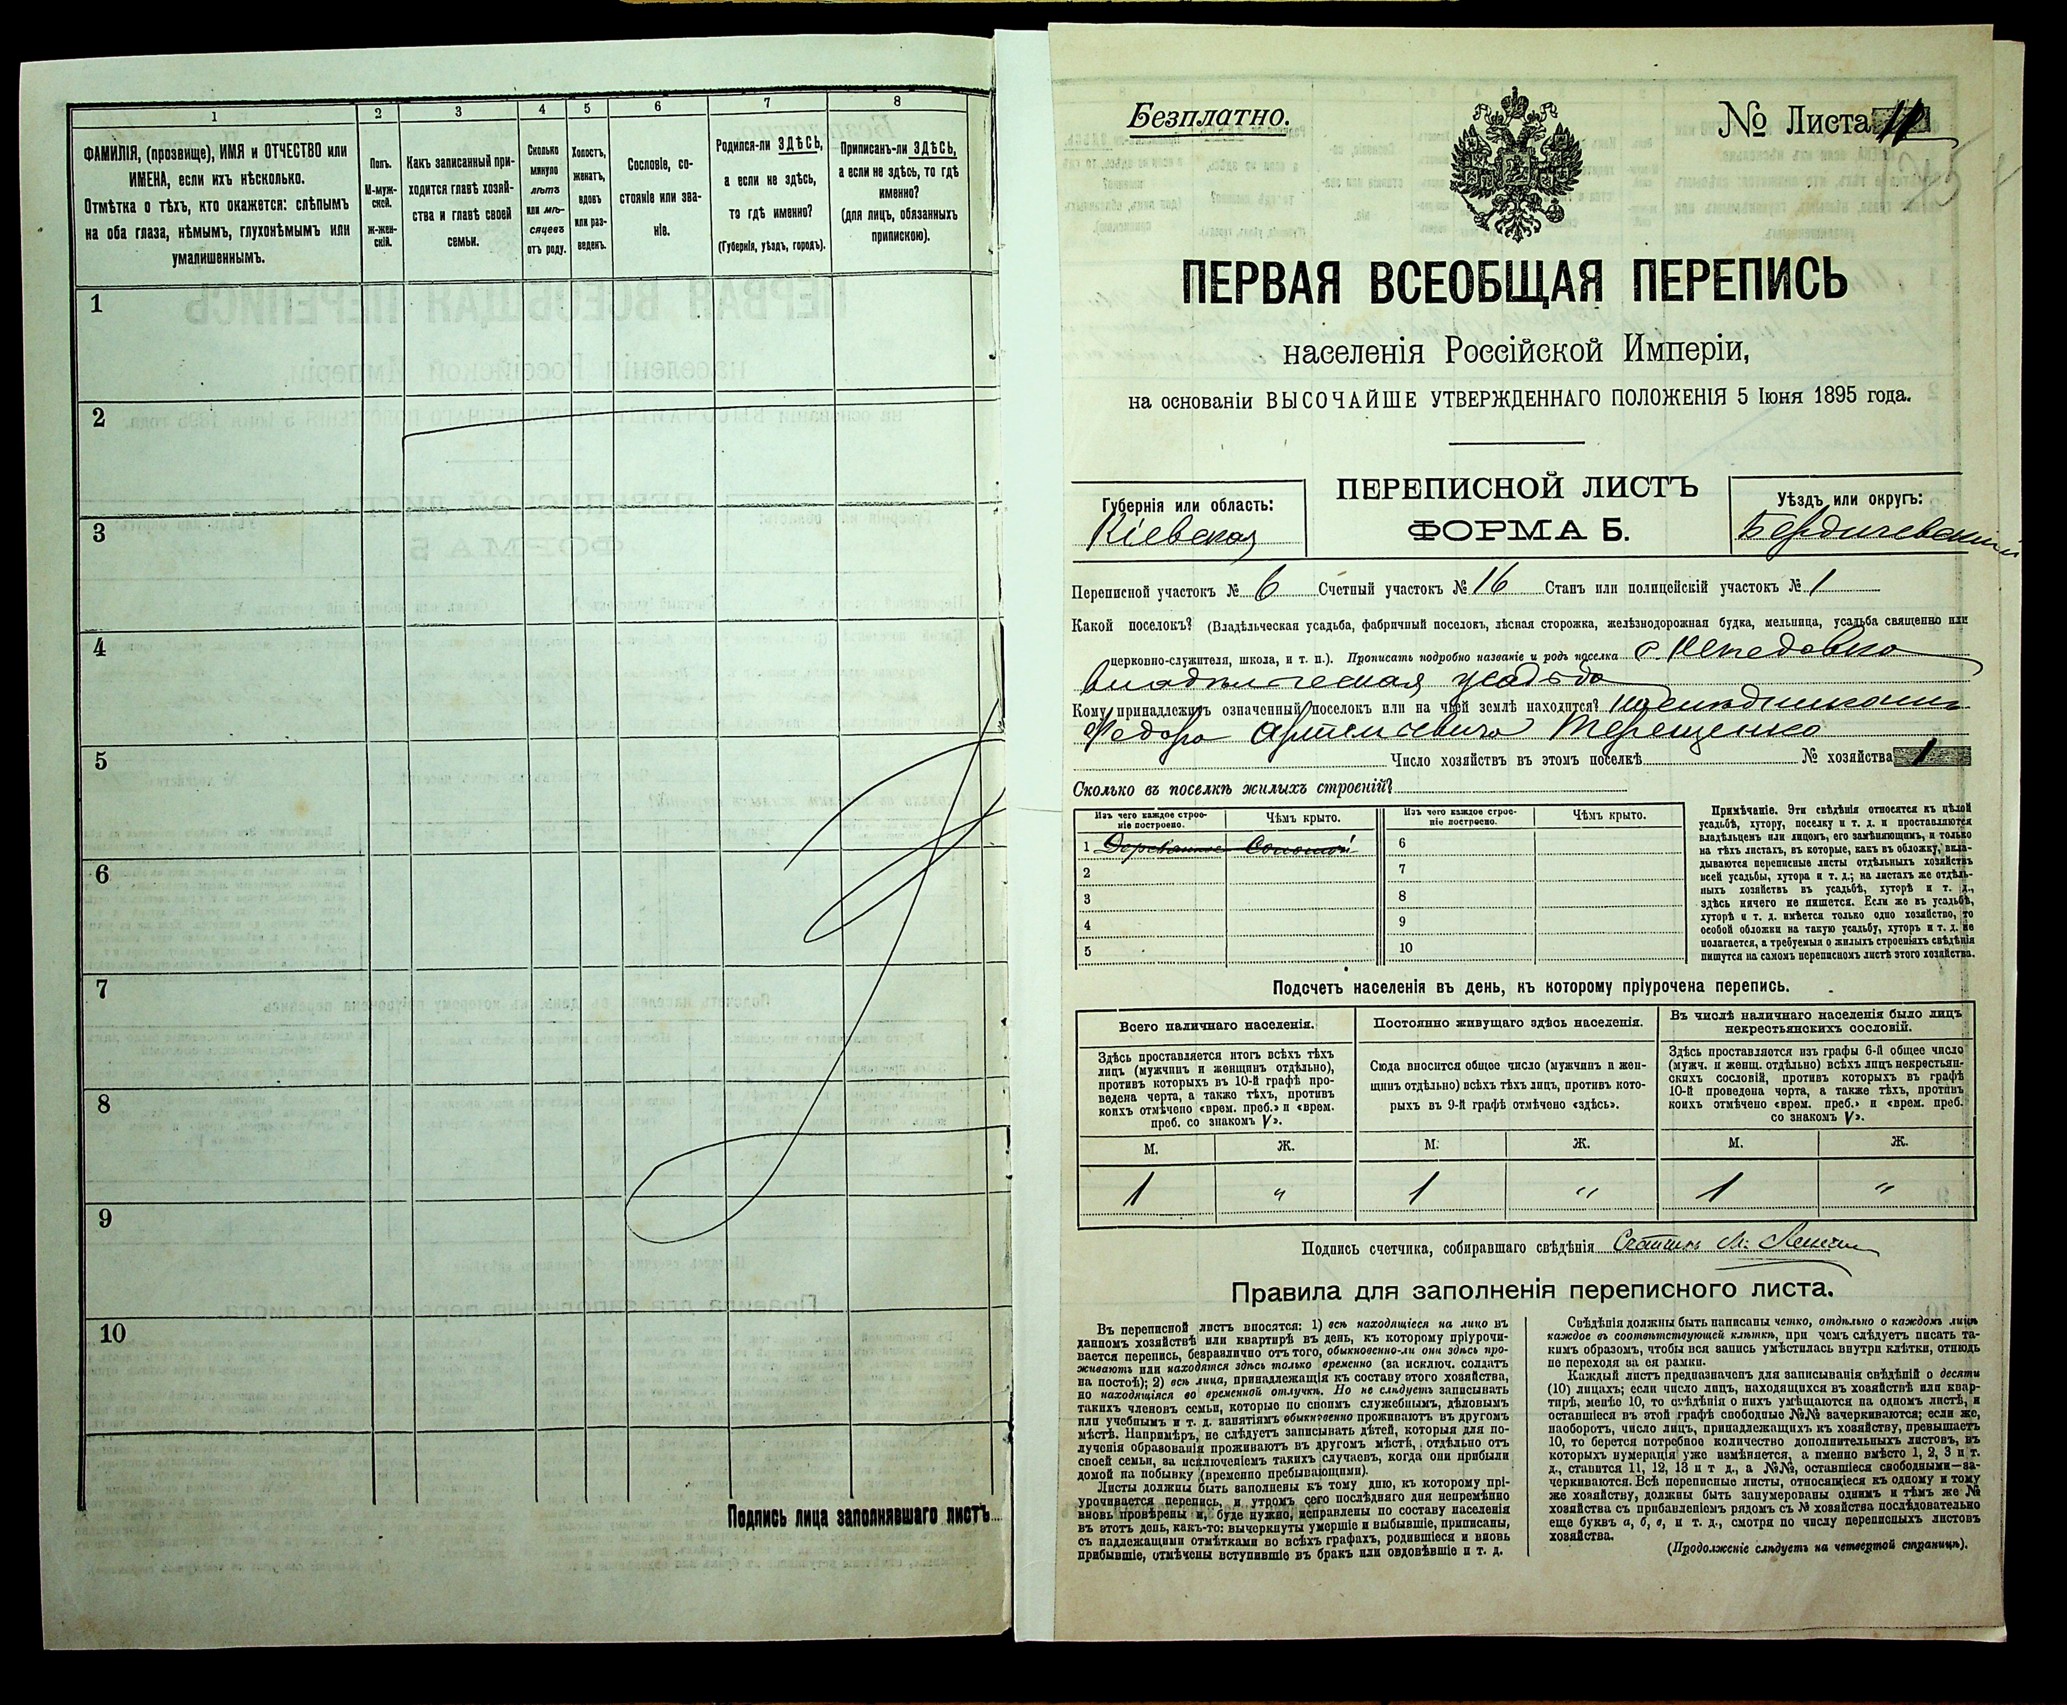 1 2 3 4 5 6 7 8
ФАМИЛІЯ, (прозвище), ИМЯ и ОТЧЕСТВО или
ИМЕНА, если ихъ нѣсколько.
Отмѣтка о тѣхъ, кто окажется: слѣпымъ
на оба глаза, нѣмымъ, глухонѣмымъ или
умалишеннымъ.
Полъ.
М-муж-
ской.
Ж-жен-
скій.
Какъ записанный при-
ходится главѣ хозяй-
ства и главѣ своей
семьи.
Сколько
минуло
лѣтъ
или мѣ-
сяцевъ
отъ роду.
Холостъ,
женатъ,
вдовъ
или раз-
веденъ.
Сословіе, со-
стояніе или зва-
ніе.
Родился-ли ЗДѢСЬ,
а если не здѣсь,
то гдѣ именно?
(Губернія, уѣздъ, городъ).
Приписанъ-ли ЗДѢСЬ,
а если не здѣсь, то гдѣ
именно?
(для лицъ, обязанныхъ
припискою).
1
2
3
4
5
6
7
8
9
10
Подпись лица заполнявшаго листъ
Безплатно.
№ Листа 11
ПЕРВАЯ ВСЕОБЩАЯ ПЕРЕПИСЬ
населенія Россійской Имперіи,
на основаніи ВЫСОЧАЙШЕ УТВЕРЖДЕННАГО ПОЛОЖЕНІЯ 5 Іюня 1895 года.
Губернія или область:
Кіевская
ПЕРЕПИСНОЙ ЛИСТЪ
ФОРМА Б.
Уѣздъ или округъ:
Бердичевскій
Переписной участокъ № 6 Счетный участокъ № 16 Станъ или полицейскій участокъ № 1
Какой поселокъ? (Владѣльческая усадьба, фабричный поселокъ, лѣсная сторожка, желѣзнодорожная будка, мельница, усадьба священно или
церковно-служителя, школа, и т. п.). Прописать подробно названіе и родъ поселка с. Непедовка
владѣльческая усадьба
Кому принадлежитъ означенный поселокъ или на чьей землѣ находится?
Федора Артемьевича Терещенко
Число хозяйствъ въ этомъ поселкѣ № хозяйства 1
Сколько въ поселкѣ жилыхъ строеній?
Изъ чего каждое строе-
ніе построено.
Чѣмъ крыто.
Изъ чего каждое строе-
ніе построено.
Чѣмъ крыто.
1 Деревянное Соломой 6
2 7
3 8
4 9
5 10
Примѣчаніе. Эти свѣдѣнія относятся къ цѣлой
усадьбѣ, хутору, поселку и т. д. и проставляются
владѣльцемъ или лицомъ, его замѣняющимъ, и только
на тѣхъ листахъ, въ которые, какъ въ обложку, вкла-
дываются переписные листы отдѣльныхъ хозяйствъ
всей усадьбы, хутора и т. д.; на листахъ же отдѣль-
ныхъ хозяйствъ въ усадьбѣ, хуторѣ и т. д.,
здѣсь ничего не пишется. Если же въ усадьбѣ,
хуторѣ и т. д. имѣется только одно хозяйство, то
особой обложки на такую усадьбу, хуторъ и т. д. не
полагается, а требуемыя о жилыхъ строеніяхъ свѣдѣнія
пишутся на самомъ переписномъ листѣ этого хозяйства.
Подсчетъ населенія въ день, къ которому пріурочена перепись.
Всего наличнаго населенія.
Постоянно живущаго здѣсь населенія.
Въ числѣ наличнаго населенія было лицъ
некрестьянскихъ сословій.
Здѣсь проставляется итогъ всѣхъ тѣхъ
лицъ (мужчинъ и женщинъ отдѣльно),
противъ которыхъ въ 10-й графѣ про-
ведена черта, а также тѣхъ, противъ
коихъ отмѣчено «врем. преб.» и «врем.
преб. со знакомъ V».
Сюда вносится общее число (мужчинъ и жен-
щинъ отдѣльно) всѣхъ тѣхъ лицъ, противъ кото-
рыхъ въ 9-й графѣ отмѣчено «здѣсь».
Здѣсь проставляется изъ графы 6-й общее число
(мужч. и женщ. отдѣльно) всѣхъ лицъ некрестьян-
скихъ сословій, противъ которыхъ въ графѣ
10-й проведена черта, а также тѣхъ, противъ
коихъ отмѣчено «врем. преб.» и «врем. преб.
со знакомъ V».
М. Ж. М. Ж. М. Ж.
1 " 1 " 1 "
Подпись счетчика, собиравшаго свѣдѣнія
Правила для заполненія переписного листа.
Въ переписной листъ вносятся: 1) всѣ находящіеся на лицо въ
данномъ хозяйствѣ или квартирѣ въ день, къ которому пріурочи-
вается перепись, безразлично отъ того, обыкновенно-ли они здѣсь про-
живаютъ или находятся здѣсь только временно (за исключ. солдатъ
на постоѣ); 2) всѣ лица, принадлежащія къ составу этого хозяйства,
но находящіяся во временной отлучкѣ. Но не слѣдуетъ записывать
такихъ членовъ семьи, которые по своимъ служебнымъ, дѣловымъ
или учебнымъ и т. д. занятіямъ обыкновенно проживаютъ въ другомъ
мѣстѣ. Напримѣръ, не слѣдуетъ записывать дѣтей, которыя для по-
лученія образованія проживаютъ въ другомъ мѣстѣ, отдѣльно отъ
своей семьи, за исключеніемъ такихъ случаевъ, когда они прибыли
домой на побывку (временно пребывающими).
Листы должны быть заполнены къ тому дню, къ которому прі-
урочивается перепись, и утромъ сего послѣдняго дня непремѣнно
вновь провѣрены и, буде нужно, исправлены по составу населенія
въ этотъ день, какъ-то: вычеркнуты умершіе и выбывшіе, приписаны,
съ надлежащими отмѣтками во всѣхъ графахъ, родившіеся и вновь
прибывшіе, отмѣчены вступившіе въ бракъ или овдовѣвшіе и т. д.
Свѣдѣнія должны быть написаны четко, отдѣльно о каждомъ лицѣ
каждое въ соотвѣтствующей клѣткѣ, при чемъ слѣдуетъ писать та-
кимъ образомъ, чтобы вся запись умѣстилась внутри клѣтки, отнюдь
не переходя за ея рамки.
Каждый листъ предназначенъ для записыванія свѣдѣній о десяти
(10) лицахъ; если число лицъ, находящихся въ хозяйствѣ или квар-
тирѣ, менѣе 10, то свѣдѣнія о нихъ умѣщаются на одномъ листѣ, и
оставшіеся въ этой графѣ свободные №№ зачеркиваются; если же,
наоборотъ, число лицъ, принадлежащихъ къ хозяйству, превышаетъ
10, то берется потребное количество дополнительныхъ листовъ, въ
которыхъ нумерація уже измѣняется, а именно вмѣсто 1, 2, 3 и т.
д., ставится 11, 12, 13 и т д., а №№, оставшіеся свободными—за-
черкиваются. Всѣ переписные листы, относящіеся къ одному и тому
же хозяйству, должны быть занумерованы однимъ и тѣмъ же №
хозяйства съ прибавленіемъ рядомъ съ № хозяйства послѣдовательно
еще буквъ а, б, в, и т. д., смотря по числу переписныхъ листовъ
хозяйства.
(Продолженіе слѣдуетъ на четвертой страницѣ).